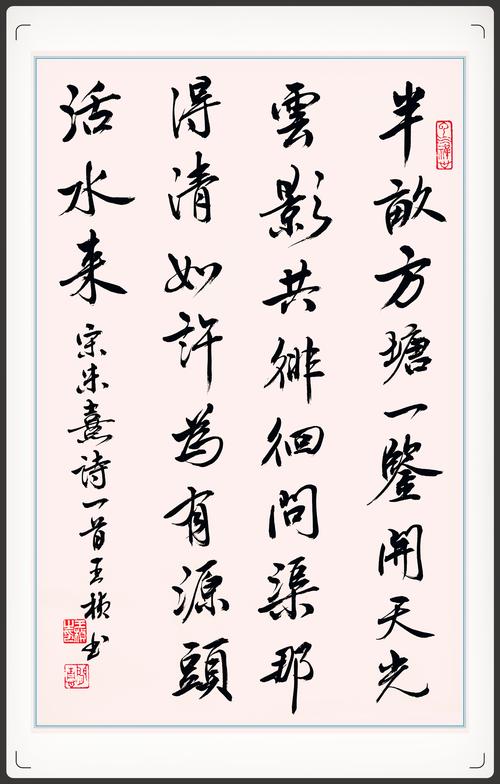 半畝方塘一鑒開天光
雲影共徘徊問渠那
得清如許為有源頭
活水来
宋朱熹诗一首王楨书